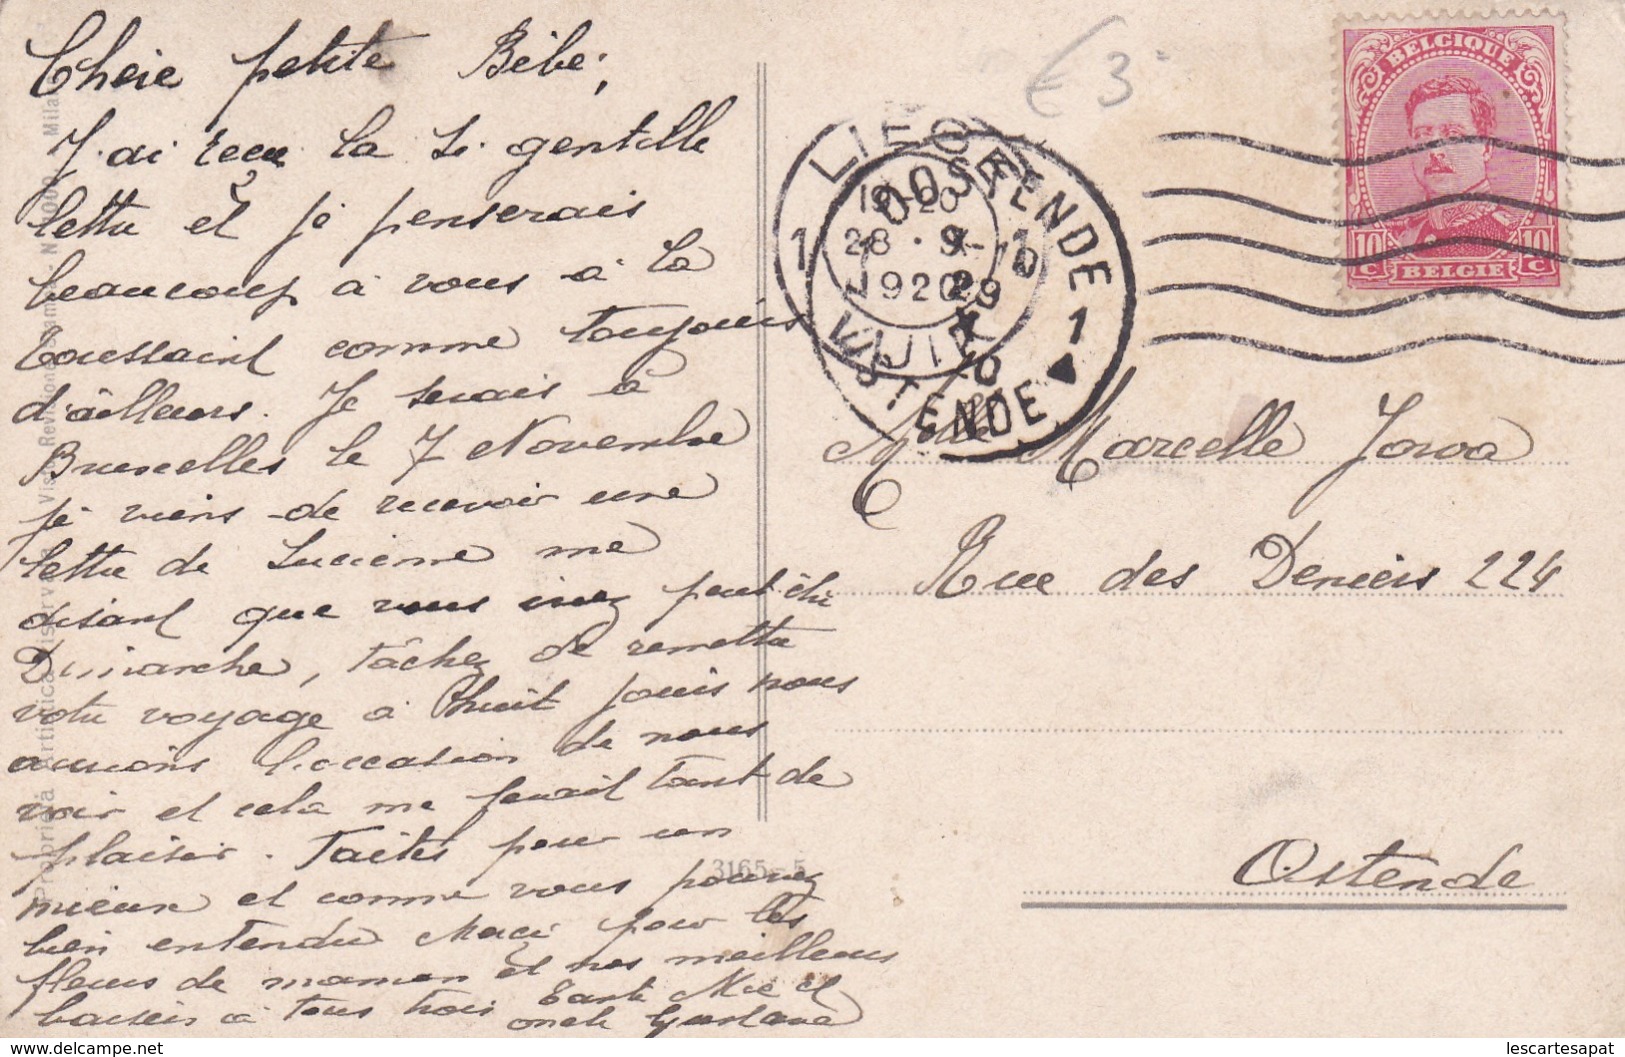 Chère petite Bébé,
J'ai reçu la si gentille
lettre et je penserais
beaucoup à vous à la
Toussaint comme toujours
d'ailleurs. Je serais à
Bruxelles le 7 Novembre
je viens de recevoir une
lettre de Lucienne me
disant que vous irez peut être
Dimanche, tâchez de remettre
votre voyage à huit jours nous
aurions l'occasion de nous
voir et cela me ferait tant de
plaisir. Faites pour un
mieux et comme vous pourrez
bien entendu Merci pour les
fleurs de maman et nos meilleurs
baisers à tous trois Tante Mie et
oncle Gustave
€ 3
BELGIQUE
10 C
10 C
BELGIE
LIEGE
19-20
28 · 9
1920
1 1
OOSTENDE
OSTENDE
1
Melle Marcelle Jowa
Rue des Deniers 224
Ostende
3165 - 5
Proprietà artistica riservata
lescartesapat